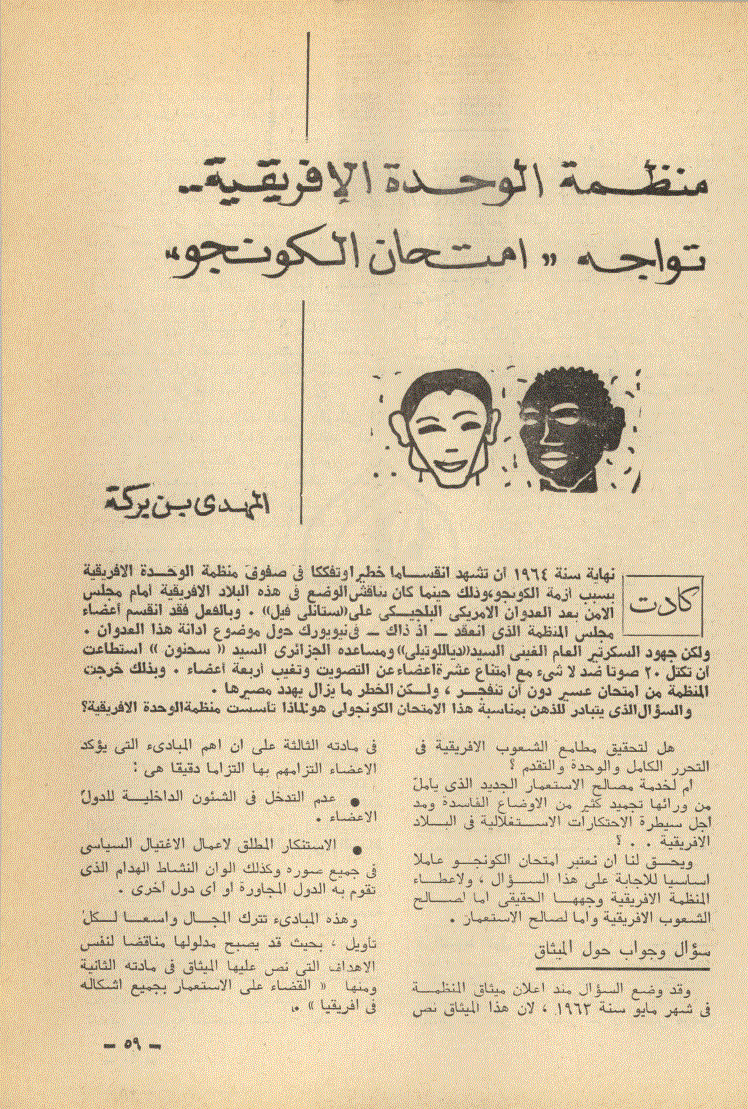 منظمة الوحدة الإفريقية..
تواجه « امتحان الكونجو»
المهدى بن بركة
كادت
نهاية سنة ١٩٦٤ ان تشهد انقساما خطيرا وتفككا فى صفوف منظمة الوحدة الافريقية
بسبب ازمة الكونجو،وذلك حينما كان يناقش الوضع فى هذه البلاد الافريقية امام مجلس
الامن بعد العدوان الامريكى البلجيكى على «ستانلى فيل» . وبالفعل فقد انقسم أعضاء
مجلس المنظمة الذى انعقد ــ اذ ذاك ــ فى نيويورك حول موضوع ادانة هذا العدوان .
ولكن جهود السكرتير العام الغينى السيد «دياللوتيلى» ومساعده الجزائرى السيد « سحنون » استطاعت
ان تكتل ٢٠ صوتا ضد لا شىء مع امتناع عشرة اعضاء عن التصويت وتغيب أربعة اعضاء . وبذلك خرجت
المنظمة من امتحان عسير دون ان تنفجر ، ولكن الخطر ما يزال يهدد مصيرها .
والسؤال الذى يتبادر للذهن بمناسبة هذا الامتحان الكونجولى هو:لماذا تأسست منظمة الوحدة الافريقية؟
هل لتحقيق مطامح الشعوب الافريقية فى
التحرر الكامل والوحدة والتقدم ؟
ام لخدمة مصالح الاستعمار الجديد الذى يأمل
من ورائها تجميد كثير من الاوضاع الفاسدة ومد
اجل سيطرة الاحتكارات الاستغلالية فى البلاد
الافريقية . . ؟
ويحق لنا ان نعتبر امتحان الكونجو عاملا
اساسيا للاجابة على هذا السؤال ، ولاعطاء
المنظمة الافريقية وجهها الحقيقى اما لصالح
الشعوب الافريقية واما لصالح الاستعمار .
سؤال وجواب حول الميثاق
وقد وضع السؤال منذ اعلان ميثاق المنظمة
فى شهر مايو سنة ١٩٦٣ ، لان هذا الميثاق نص
فى مادته الثالثة على ان اهم المبادىء التى يؤكد
الاعضاء التزامهم بها التزاما دقيقا هى :
● عدم التدخل فى الشئون الداخلية للدول
الاعضاء .
● الاستنكار المطلق لاعمال الاغتيال السياسى
فى جميع صوره وكذلك الوان النشاط الهدام الذى
تقوم به الدول المجاورة او اى دول اخرى .
وهذه المبادىء تترك المجال واسعا لكل
تأويل ، بحيث قد يصبح مدلولها مناقضا لنفس
الاهداف التى نص عليها الميثاق فى مادته الثانية
ومنها « القضاء على الاستعمار بجميع اشكاله
فى افريقيا » .
ــ ٥٩ ــ